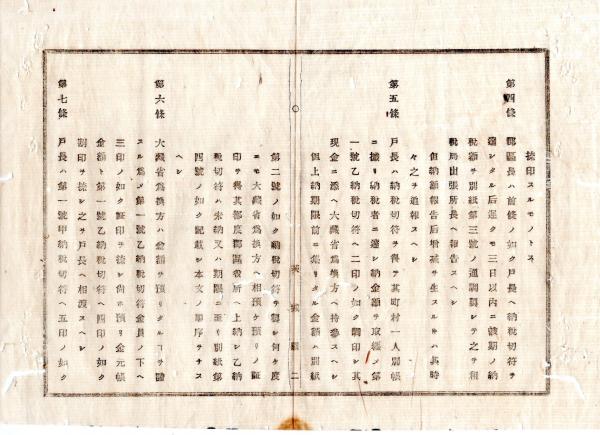 捺印スルモノトス
第四條 郡區長ハ前條ノ如ク戸長ヘ納税切符ヲ
達シタル后遅クモ三日以内ニ該期ノ納
税額ヲ別紙第三號ノ通調製シテ之ヲ租
税局出張所長ヘ報告スヘシ
但納額報告后増減ヲ生スルトキハ其時
々之ヲ通報スヘシ
第五條 戸長ハ納税切符ヲ得テ其町村一人別帳
ニ據リ納税者ニ達シ納金額ヲ取纏メ第
一號乙納税切符ヘ二印ノ如ク調印シ其
現金ニ添ヘ大藏省爲換方ヘ持參スヘシ
但上納期限前ニ集リタル金額ハ別紙
第二號ノ如ク納税切符ヲ製シ何ケ度
ニモ大藏省爲換方ヘ相預ケ預リノ証
印ヲ得其都度郡區役所ヘ上納シ乙納
税切符ハ未納又ハ期限ニ至リ別紙第
四號ノ如ク記載シ本文ノ順序ヲナス
ヘシ
第六條 大藏省爲換方ハ金額預リタルヲ證
スル爲メ第一號乙納税切符金員ノ下ヘ
三印ノ如ク証印ヲ捺シ尚ホ預リ金元帳
金額ト第一號乙納税切符ヘ四印ノ如ク
割印ヲ捺シ之ヲ戸長ヘ相渡スヘシ
第七條 戸長ハ第一號甲納税切符ヘ五印ノ如ク